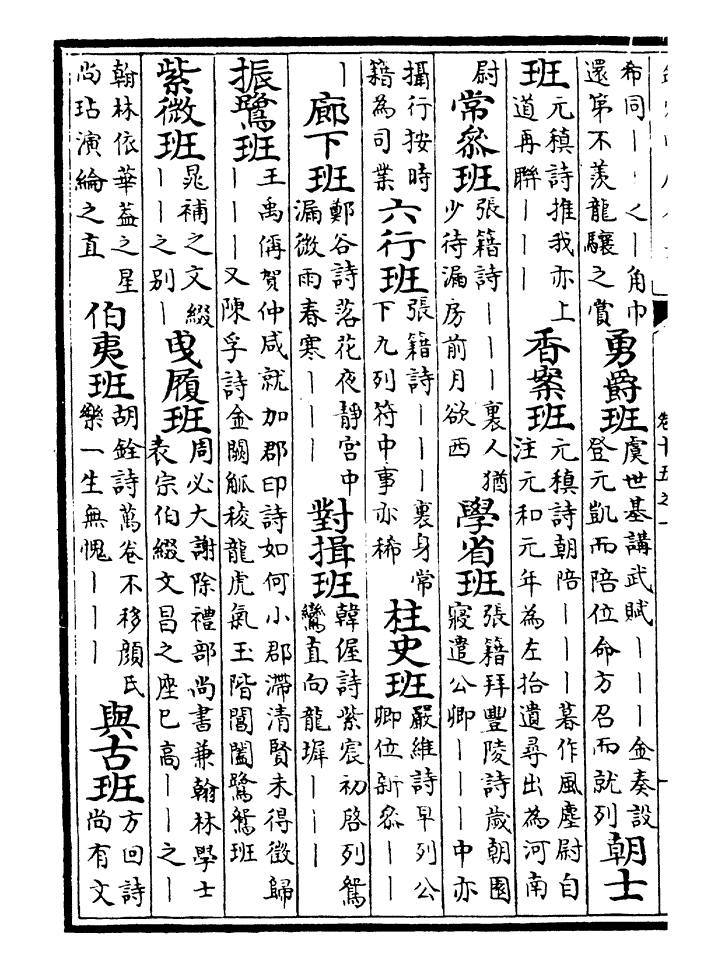 卷十五之一
希同｜｜乂｜角巾
還第不羨龍驤之賞
勇爵班
虞世基講武賦｜｜｜金奏設
登元凱而陪位命方召而就列
朝士
班
元稹詩推我亦上
道再聨｜｜｜
香案班
元稹詩朝陪｜｜｜暮作風塵尉自
注元和元年為左拾遺尋出為河南
尉
常叅班
張籍詩｜｜｜裏人猶
少待漏房前月欲西
學省班
張籍拜豐陵詩歲朝園
寢遣公卿｜｜｜中亦
攝行按時
籍為司業
六行班
張籍詩｜｜｜裏身常
下九列符中事亦稀
柱史班
嚴維詩早列公
卿位新叅｜｜
｜
廊下班
鄭谷詩落花夜靜宫中
漏微雨春寒｜｜｜
對揖班
韓偓詩紫宸初啓列鴛
鸞直向龍墀｜｜｜
振鷺班
王禹偁賀仲咸就加郡印詩如何小郡滯清賢未得徵歸
｜｜｜又陳孚詩金闕觚稜龍虎氣玉階閶闔鷺鴛班
紫微班
晁補之文綴
｜｜之別｜
曵履班
周必大謝除禮部尚書兼翰林學士
表宗伯綴文昌之座已高｜｜之｜
翰林依華葢之星
尚玷演綸之直
伯夷班
胡銓詩萬卷不移顔氏
樂一生無愧｜｜｜
與古班
方回詩
尚有文